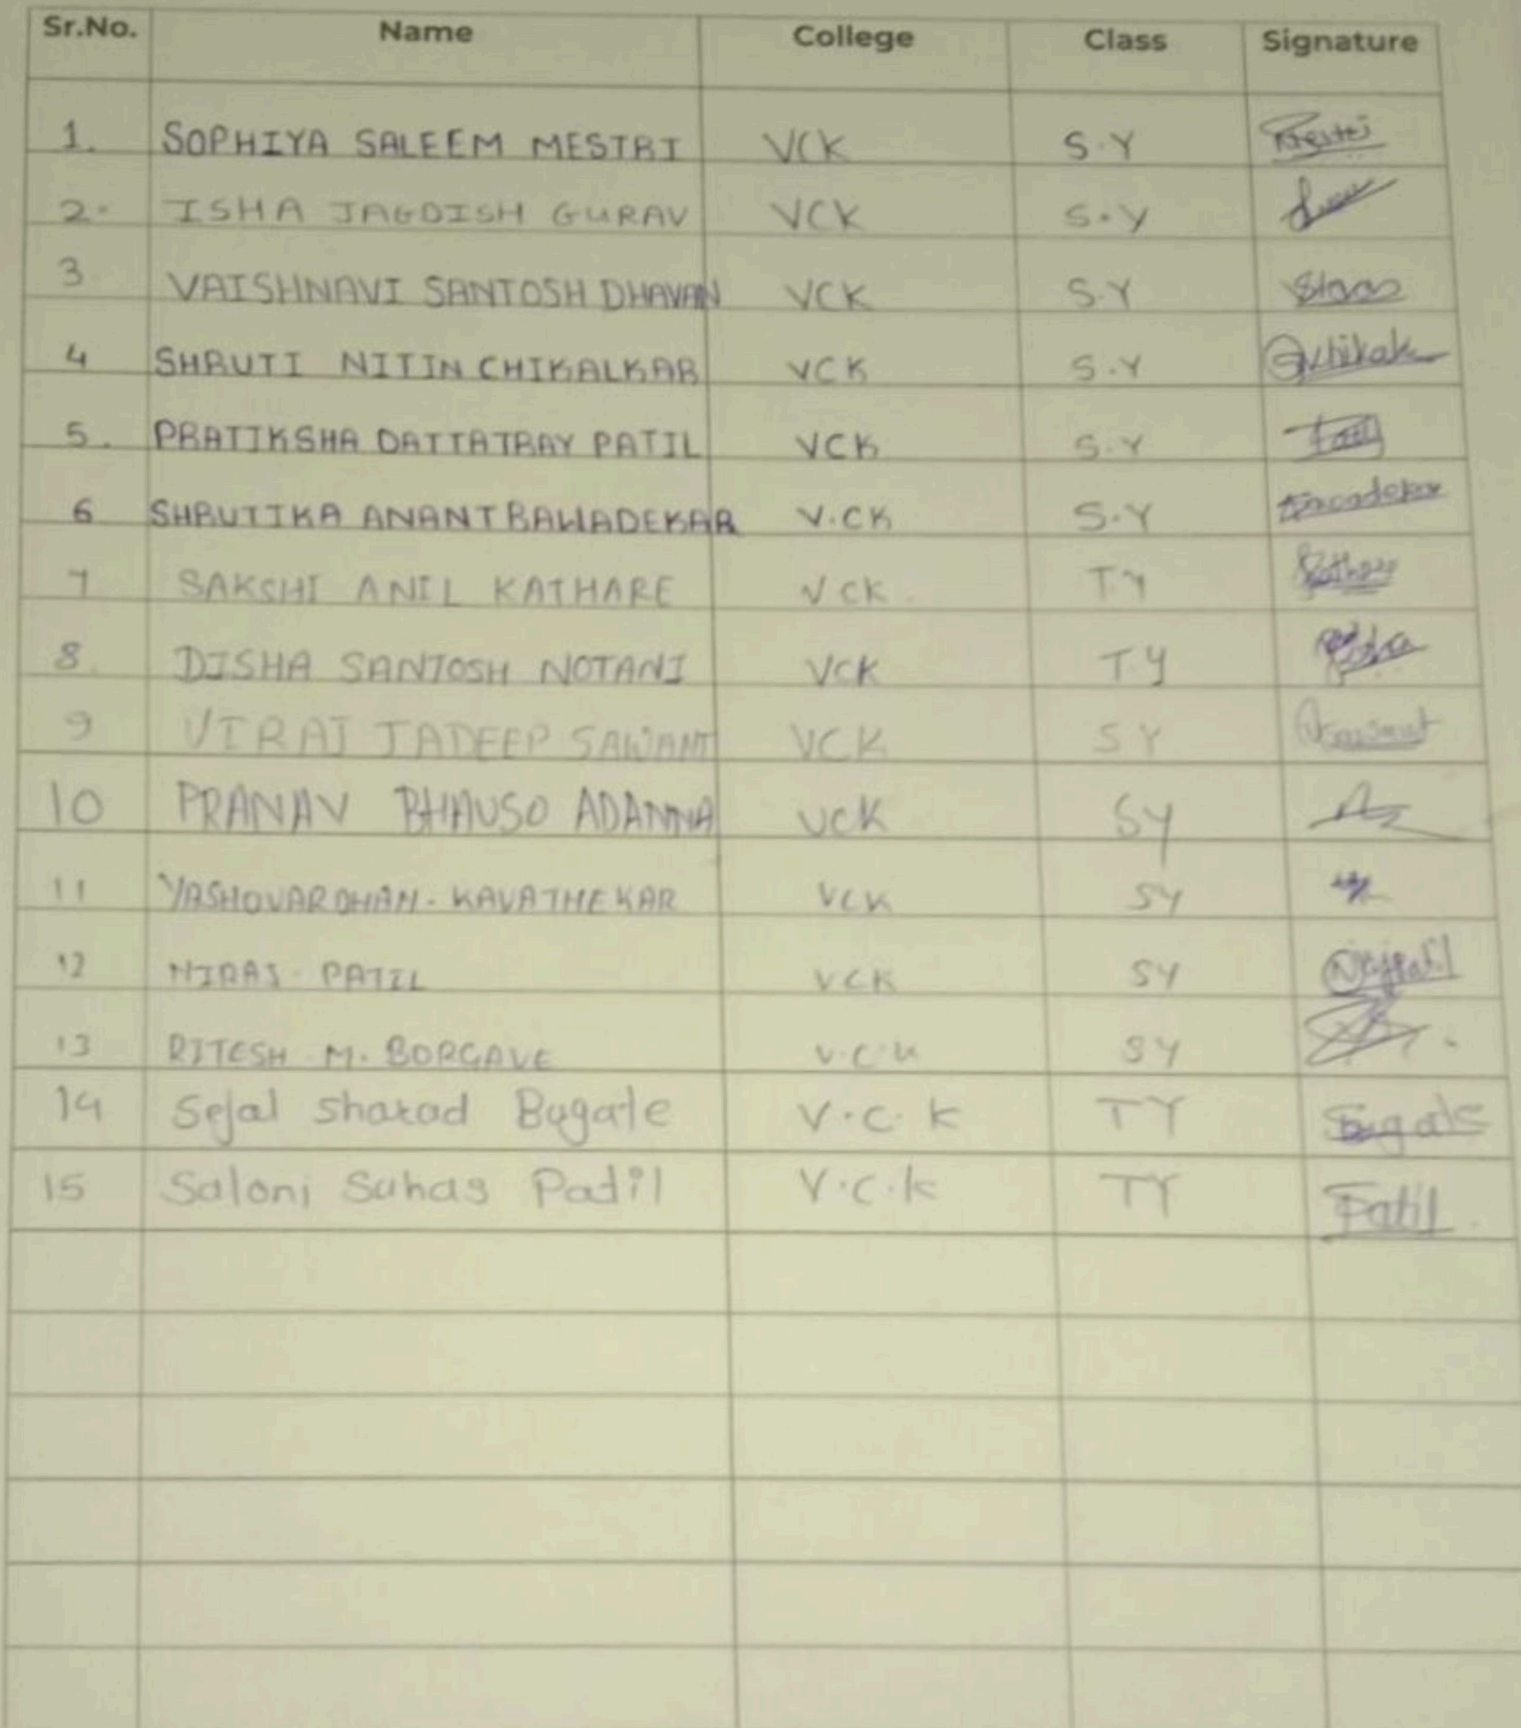 Sr.No. Name College Class Signature
1. SOPHIYA SALEEM MESTRI VCK S.Y Mestri
2. ISHA JAGDISH GURAV VCK S.Y
3 VAISHNAVI SANTOSH DHAVAN VCK S.Y
4 SHRUTI NITIN CHIKALKAR VCK S.Y
5. PRATIKSHA DATTATRAY PATIL VCK S.Y
6 SHRUTIKA ANANT RAWADEKAR V.CK S.Y
7 SAKSHI ANIL KATHARE VCK. T.Y
8. DISHA SANTOSH NOTANI VCK T.Y
9 VIRAJ JADEEP SAWANT VCK SY
10 PRANAV BHAUSO ADANNA VCK SY
11 YASHOVARDHAN. KAVATHEKAR VCK SY
12 NIRAJ PATIL VCK SY
13 RITESH M. BORGAVE V.C.K SY
14 Sejal Sharad Bugate V.C.K TY Bugate
15 Saloni Suhas Patil V.C.K TY Patil